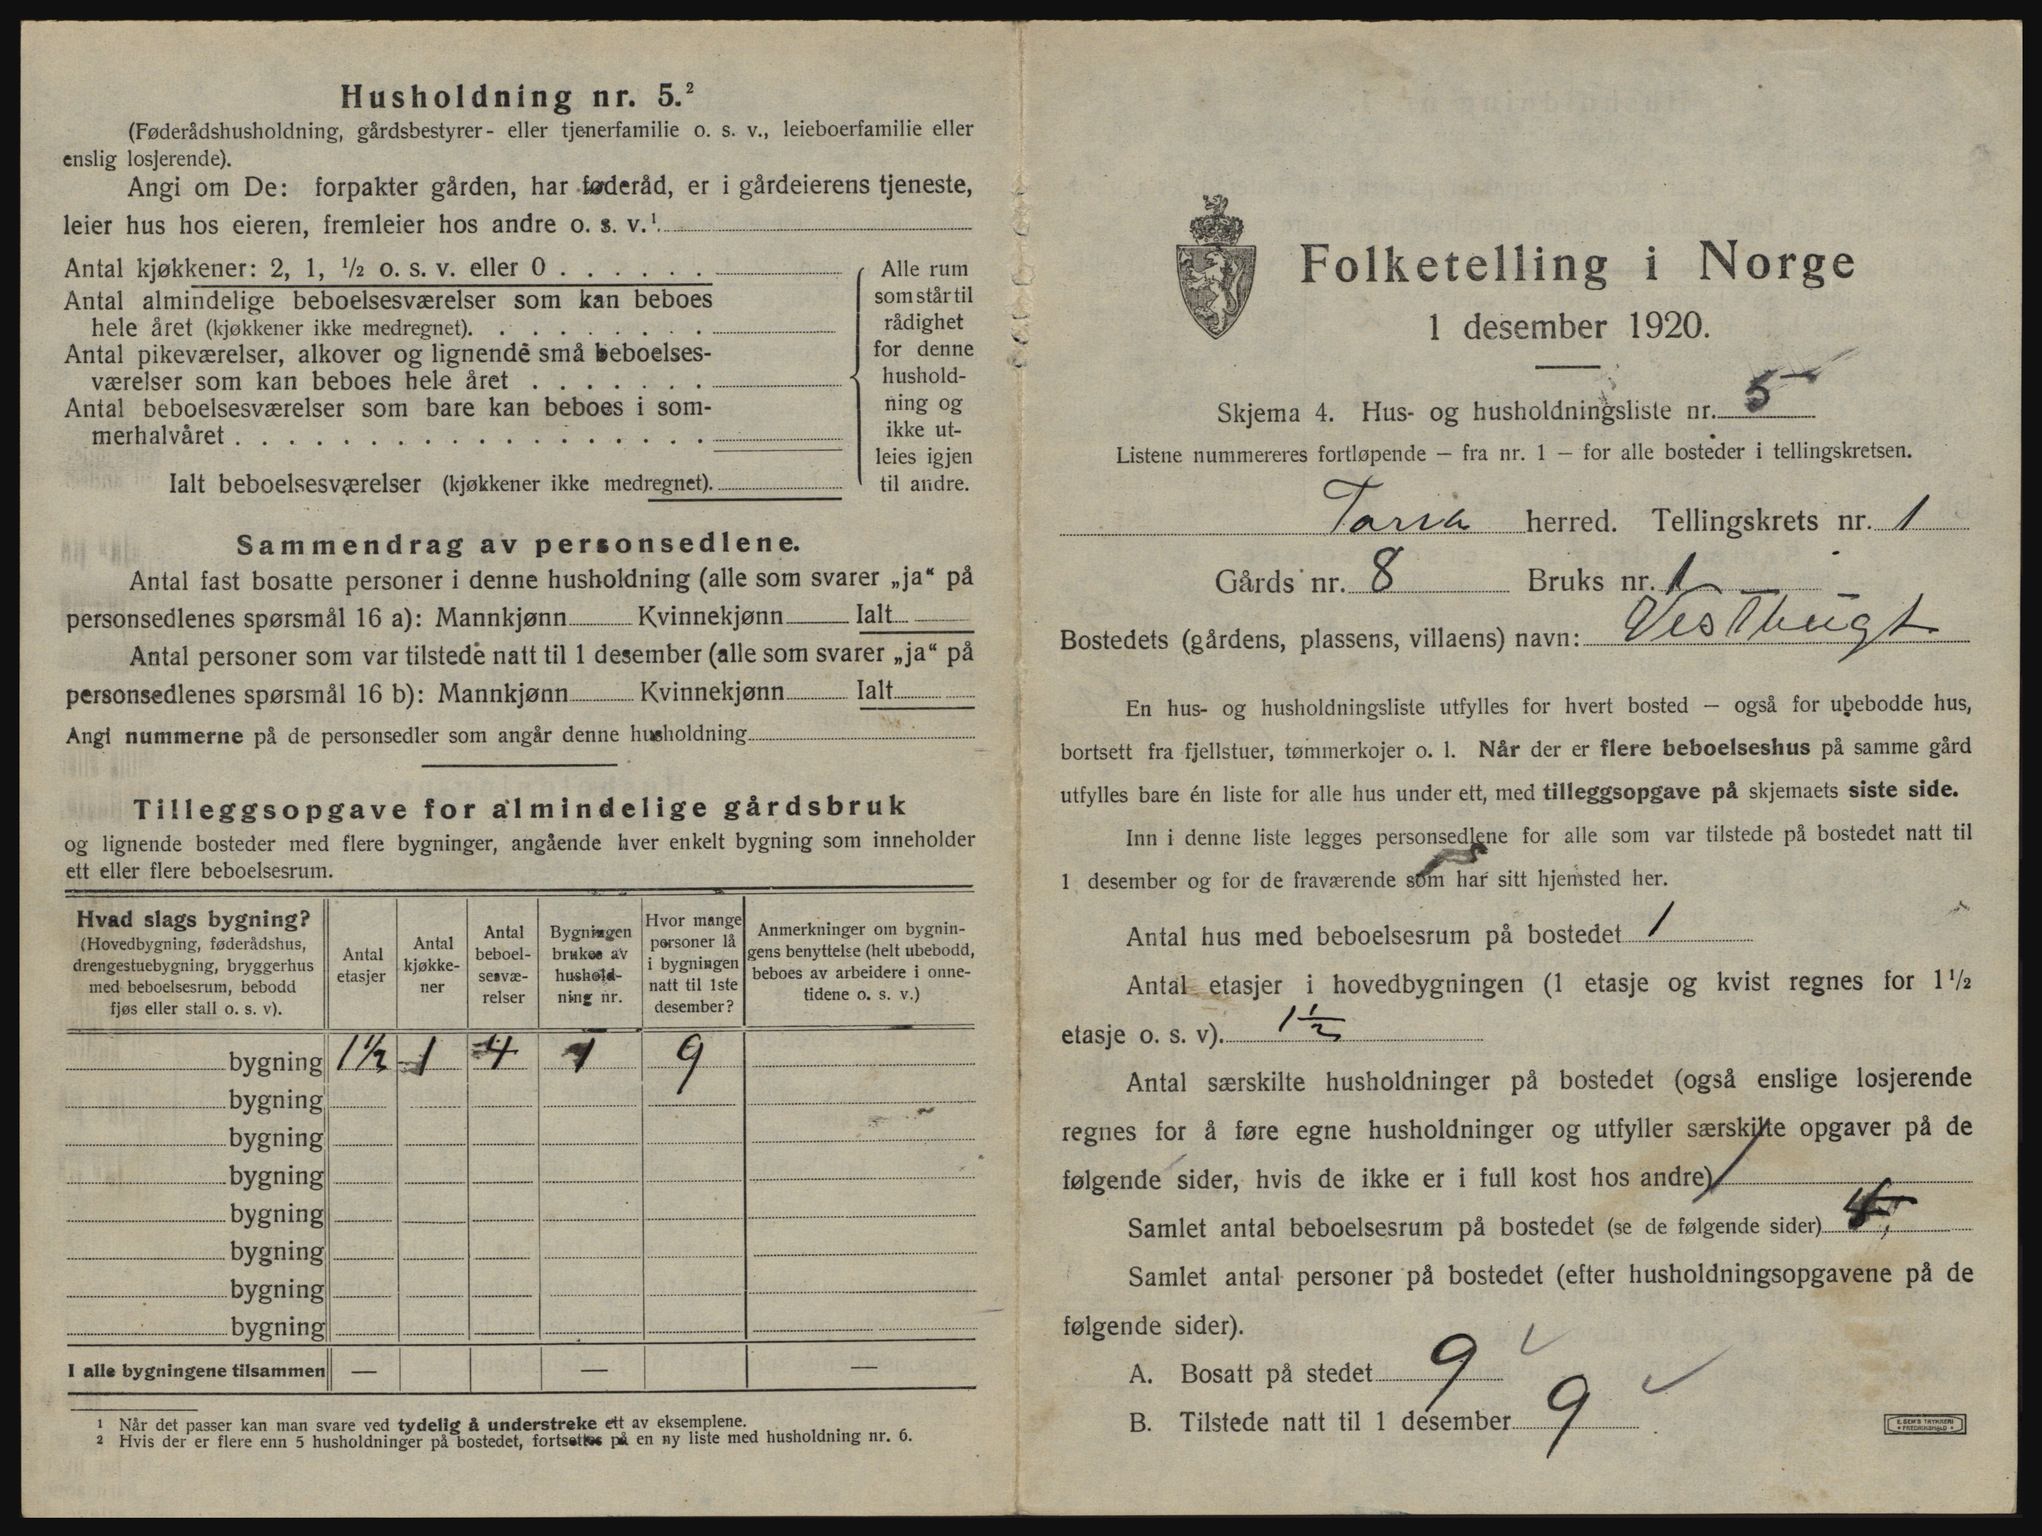 Husholdning nr. 5.²
(Føderådshusholdning, gårdsbestyrer- eller tjenerfamilie o. s. v., leieboerfamilie eller
enslig losjerende).
Angi om De: forpakter gården, har føderåd, er i gårdeierens tjeneste,
leier hus hos eieren, fremleier hos andre o. s. v.¹
Antal kjøkkener: 2, 1, ½ o. s. v. eller 0 . . . . . .
Antal almindelige beboelsesværelser som kan beboes
hele året (kjøkkener ikke medregnet). . . . . . . . .
Antal pikeværelser, alkover og lignende små beboelses-
værelser som kan beboes hele året . . . . . . .
Antal beboelsesværelser som bare kan beboes i som-
merhalvåret . . . . . . . . . . . . . . . . . .
Ialt beboelsesværelser (kjøkkener ikke medregnet).
Alle rum
som står til
rådighet
for denne
hushold-
ning og
ikke ut-
leies igjen
til andre.
Sammendrag av personsedlene.
Antal fast bosatte personer i denne husholdning (alle som svarer „ja“ på
personsedlenes spørsmål 16 a): Mannkjønn Kvinnekjønn Ialt
Antal personer som var tilstede natt til 1 desember (alle som svarer „ja“ på
personsedlenes spørsmål 16 b): Mannkjønn Kvinnekjønn Ialt
Angi nummerne på de personsedler som angår denne husholdning
Tilleggsopgave for almindelige gårdsbruk
og lignende bosteder med flere bygninger, angående hver enkelt bygning som inneholder
ett eller flere beboelsesrum.
Hvad slags bygning?
(Hovedbygning, føderådshus,
drengestuebygning, bryggerhus
med beboelsesrum, bebodd
fjøs eller stall o. s. v).
Antal
etasjer
Antal
kjøkke-
ner
Antal
beboel-
sesvæ-
relser
Bygningen
brukes av
hushold-
ning nr.
Hvor mange
personer lå
i bygningen
natt til 1ste
desember?
Anmerkninger om bygnin-
gens benyttelse (helt ubebodd,
beboes av arbeidere i onne-
tidene o. s. v.)
bygning 1½ 1 4 1 9
bygning
bygning
bygning
bygning
bygning
bygning
bygning
I alle bygningene tilsammen — — —
¹ Når det passer kan man svare ved tydelig å understreke ett av eksemplene.
² Hvis der er flere enn 5 husholdninger på bostedet, fortsettes på en ny liste med husholdning nr. 6.
Folketelling i Norge
1 desember 1920.
Skjema 4. Hus- og husholdningsliste nr. 5
Listene nummereres fortløpende – fra nr. 1 – for alle bosteder i tellingskretsen.
Torsk herred. Tellingskrets nr. 1
Gårds nr. 8 Bruks nr. 1
Bostedets (gårdens, plassens, villaens) navn: Vestbugt
En hus- og husholdningsliste utfylles for hvert bosted – også for ubebodde hus,
bortsett fra fjellstuer, tømmerkojer o. l. Når der er flere beboelseshus på samme gård
utfylles bare én liste for alle hus under ett, med tilleggsopgave på skjemaets siste side.
Inn i denne liste legges personsedlene for alle som var tilstede på bostedet natt til
1 desember og for de fraværende som har sitt hjemsted her.
Antal hus med beboelsesrum på bostedet 1
Antal etasjer i hovedbygningen (1 etasje og kvist regnes for 1½
etasje o. s. v). 1½
Antal særskilte husholdninger på bostedet (også enslige losjerende
regnes for å føre egne husholdninger og utfyller særskilte opgaver på de
følgende sider, hvis de ikke er i full kost hos andre) 1
Samlet antal beboelsesrum på bostedet (se de følgende sider)
Samlet antal personer på bostedet (efter husholdningsopgavene på de
følgende sider).
A. Bosatt på stedet 9
B. Tilstede natt til 1 desember 9
E. SEM'S TRYKKERI
FREDRIKSHALD